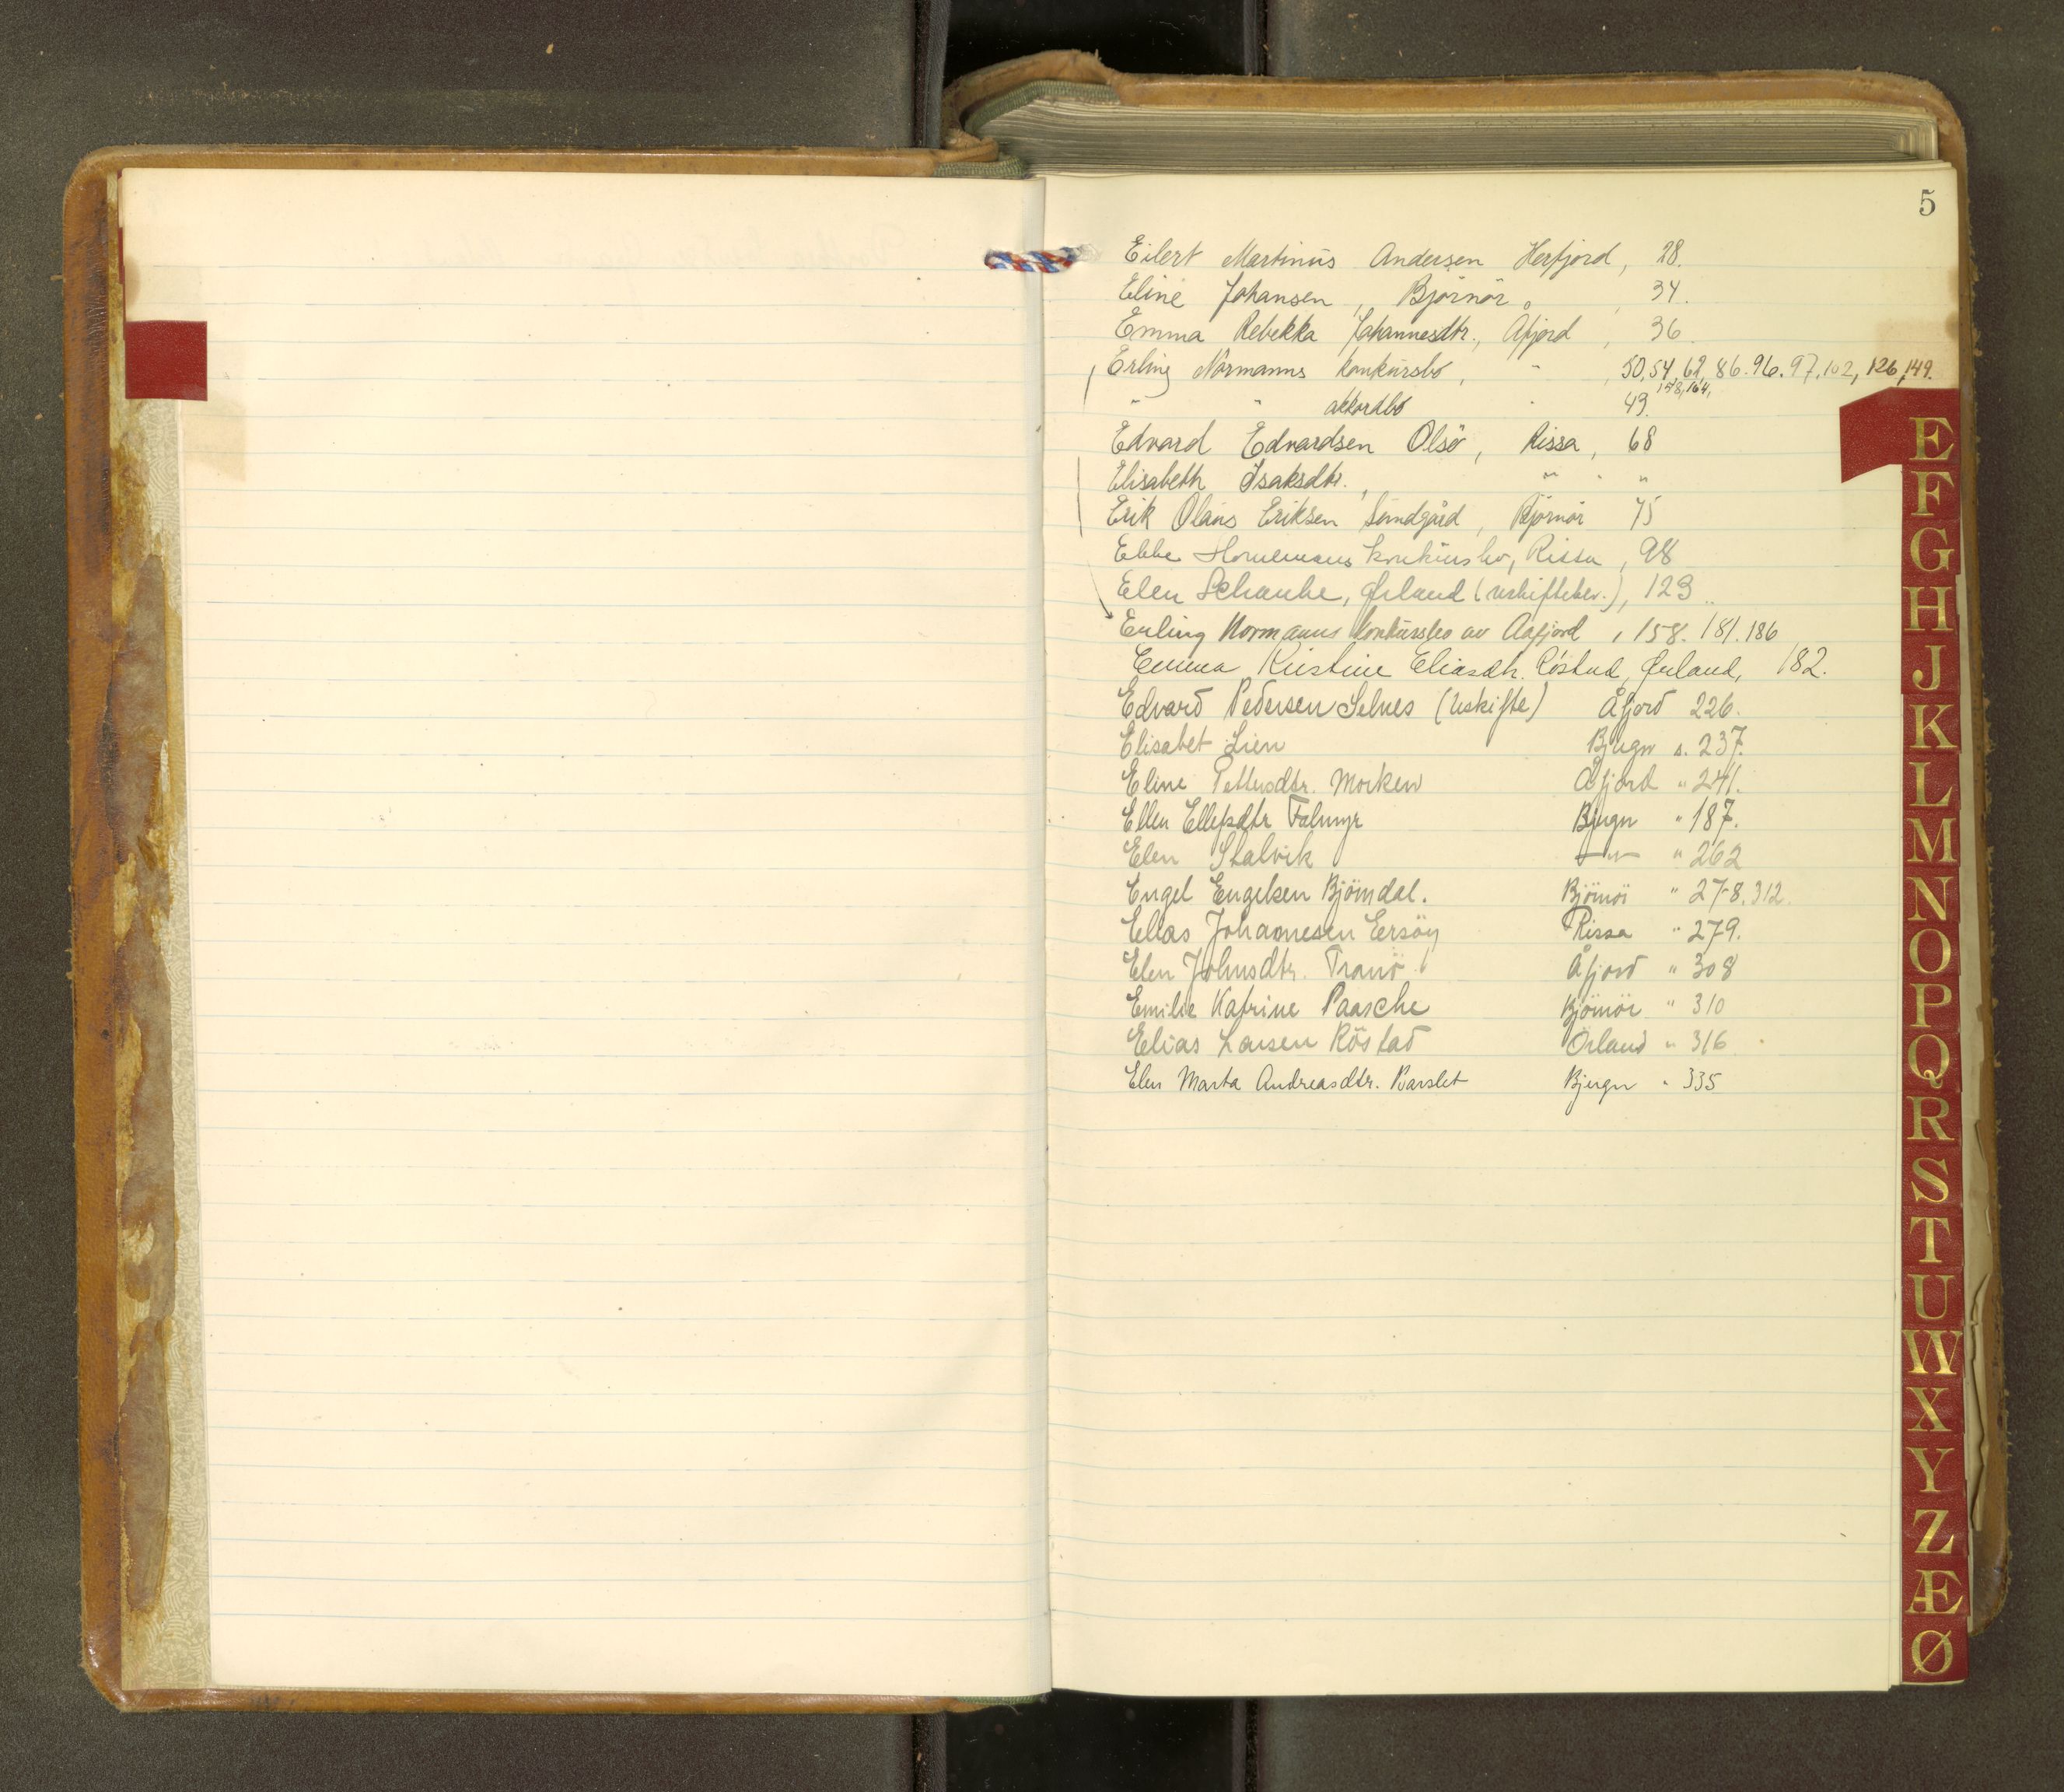 5
Eilert Martinus Andersen Herfjord, 28.
Eline Johansen, Bjørnør, 34.
Emma Rebekka Johannesdtr., Åfjord, 36
Erling Normanns konkursbo, " , 50, 54, 62, 86. 96. 97, 102, 126, 149.
158, 164,
" " akkordbo " 49.
Edvard Edvardsen Olsø, Rissa, 68
Elisabeth Isaksdtr., " " "
Erik Olaus Eriksen Sundgård, Bjørnør 75
Ebbe Hornemans konkursbo, Rissa, 98
Elen Schanke, Ørland (uskiftebev.), 123
Erling Normanns konkursbo av Aafjord, 158. 181. 186
Emma Kristine Eliasdtr. Röstad, Ørland, 182.
Edvard Pedersen Selnes (uskifte) Åfjord 226.
Elisabet Lien Bjugn s. 237.
Eline Pettersdtr. Morken Åfjord " 241.
Ellen Ellefsdtr Falmyr Bjugn " 187.
Elen Stalvik —"— " 262
Engel Engelsen Björndal. Björnör " 278. 312.
Elias Johannesen Ersöy Rissa " 279.
Elen Johnsdtr. Tranö Åfjord " 308
Emilie Katrine Paasche Björnör " 310
Elias Larsen Röstad Örland " 316
Elen Marta Andreasdtr. Barslet Bjugn " 335
E
F
G
H
J
K
L
M
N
O
P
Q
R
S
T
U
W
X
Y
Z
Æ
Ø